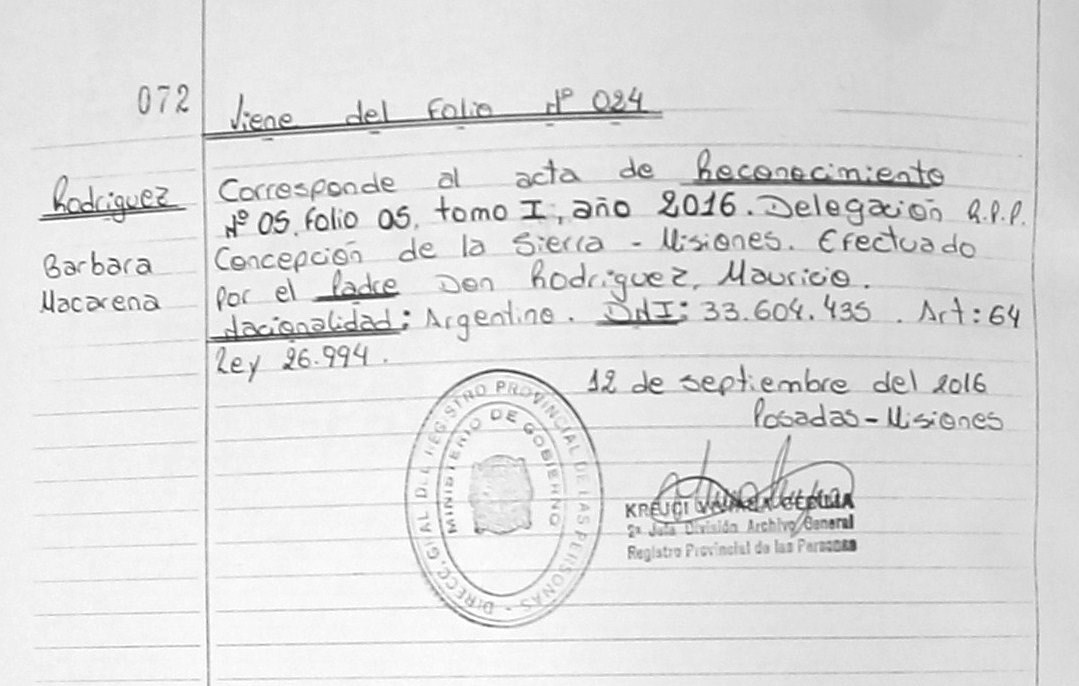 072
Viene del Folio Nº 024
Rodriguez
Barbara
Macarena
Corresponde al acta de Reconocimiento
Nº 05, Folio 05, tomo I, año 2016. Delegación R.P.P.
Concepción de la Sierra - Misiones. Efectuado
por el Padre Don Rodriguez, Mauricio.
Nacionalidad: Argentino. DNI: 33.604.435. Art: 64
Ley 26.994.
12 de septiembre del 2016
Posadas - Misiones
DIRECC. GRAL DEL REGISTRO PROVINCIAL DE LAS PERSONAS
MINISTERIO DE GOBIERNO
KREUCI
2ª Jefa División Archivo General
Registro Provincial de las Personas